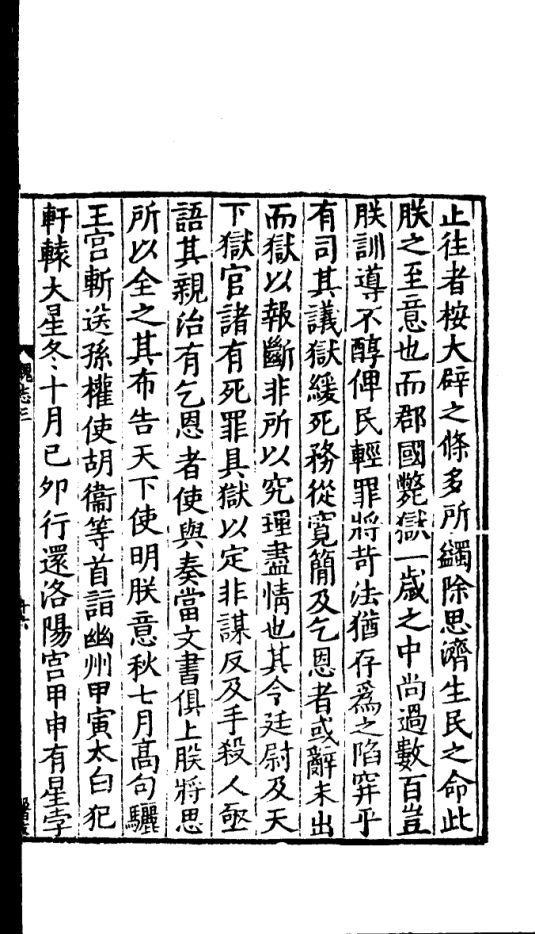 止往者桉大辟之條多所蠲除思濟生民之命此
朕之至意也而郡國斃獄一歲之中尚過數百豈
朕訓導不醇俾民輕罪將苛法猶存為之陷穽乎
有司其議獄緩死務從寬簡及乞恩者或辭未出
而獄以報斷非所以究理盡情也其令廷尉及天
下獄官諸有死罪具獄以定非謀反及手殺人亟
語其親治有乞恩者使與奏當文書俱上朕將思
所以全之其布告天下使明朕意秋七月髙句驪
王宮斬送孫權使胡衞等首詣幽州甲寅太白犯
軒轅大星冬十月己卯行還洛陽宮甲申有星孛
魏志三
廿六